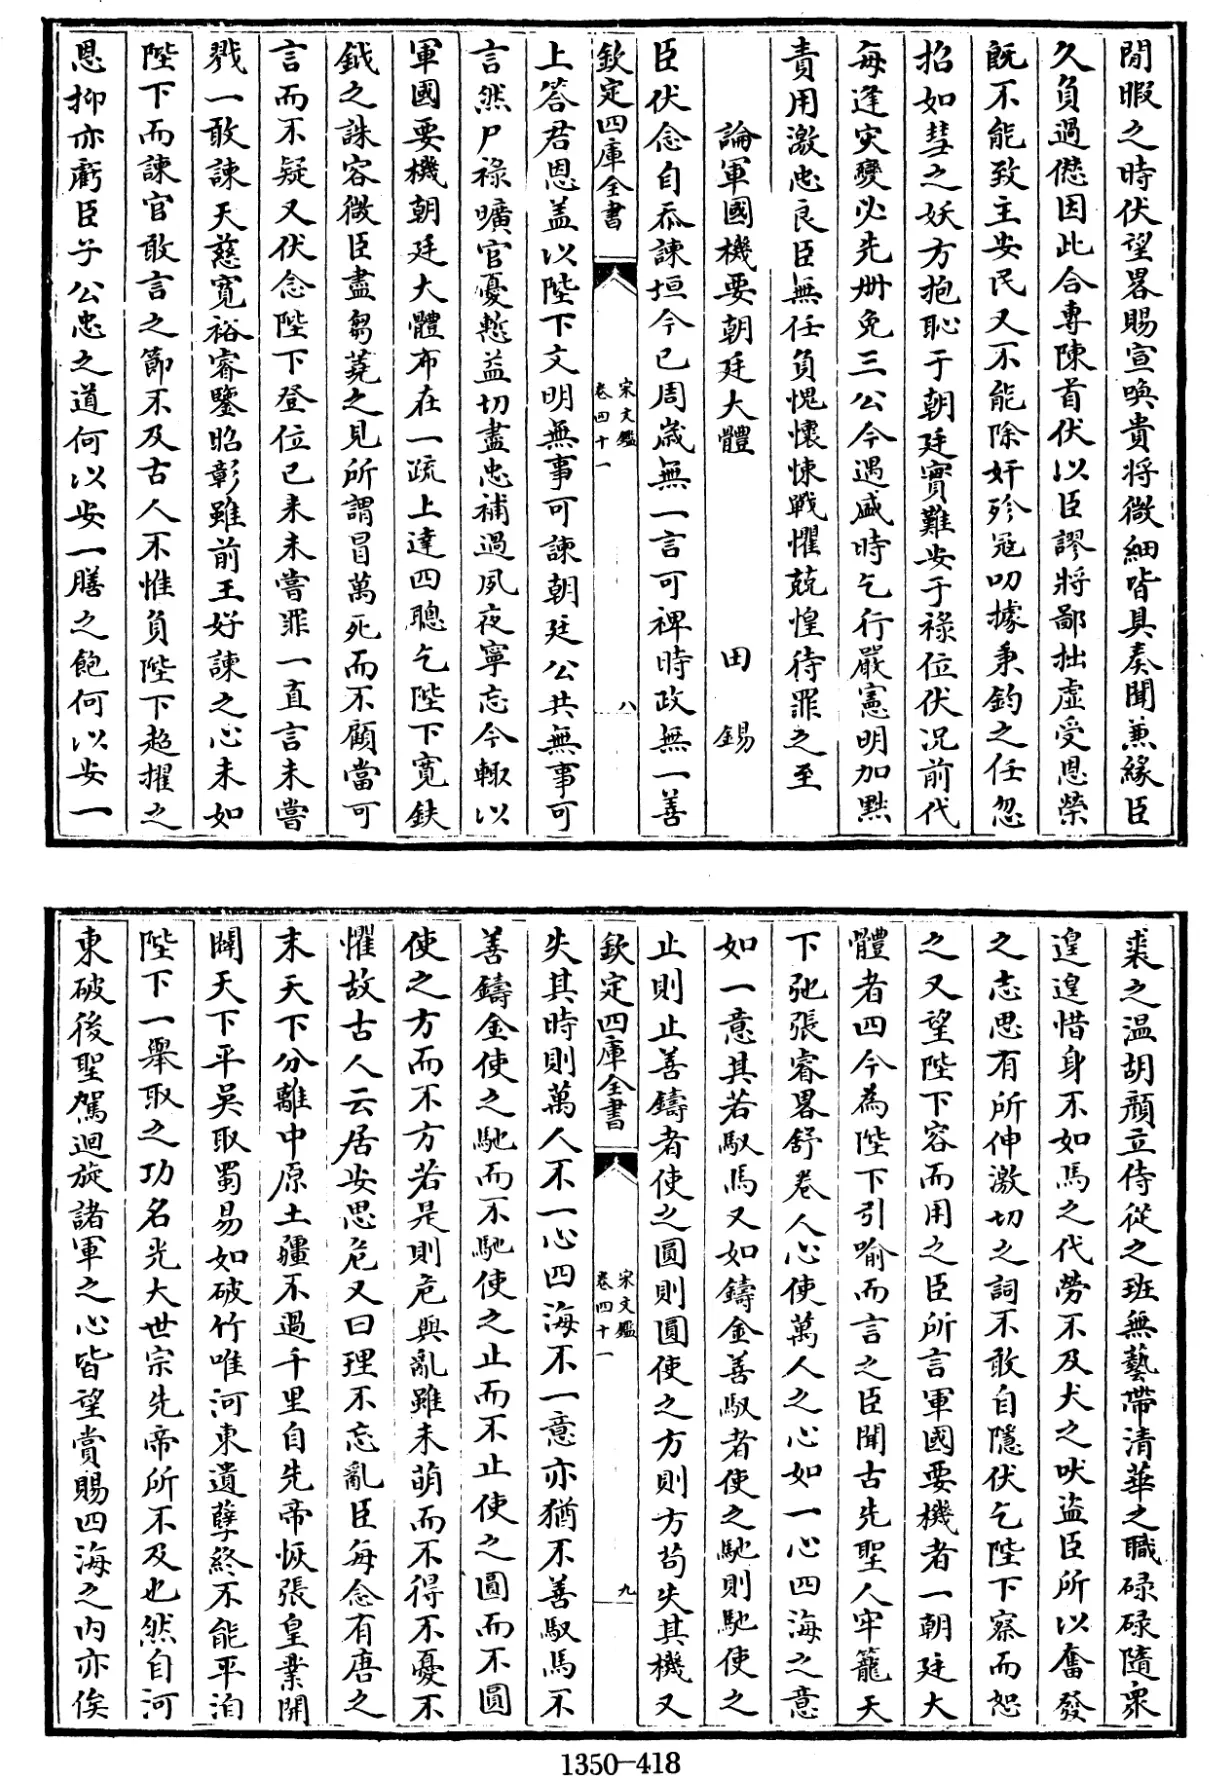 閒暇之時伏望畧賜宣喚貴將微細皆具奏聞兼緣臣
久負過愆因此合專陳首伏以臣謬將鄙拙虛受恩榮
既不能致主安民又不能除奸殄冦叨據秉鈞之任忽
招如彗之妖方抱恥于朝廷實難安于祿位伏況前代
每逢災變必先册免三公今遇盛時乞行嚴憲明加黜
責用激忠良臣無任負愧懷悚戰懼兢惶待罪之至
論軍國機要朝廷大體 田錫
臣伏念自忝諫垣今已周歲無一言可裨時政無一善
欽定四庫全書 宋文鑑 卷四十一 八
上答君恩盖以陛下文明無事可諫朝廷公共無事可
言然尸祿曠官憂慙益切盡忠補過夙夜寧忘今輙以
軍國要機朝廷大體布在一疏上達四聰乞陛下寛鈇
鉞之誅容微臣盡芻蕘之見所謂冒萬死而不顧當可
言而不疑又伏念陛下登位已来未嘗罪一直言未嘗
戮一敢諫天慈寛裕睿鑒昭彰雖前王好諫之心未如
陛下而諫官敢言之節不及古人不惟負陛下超擢之
恩抑亦虧臣子公忠之道何以安一膳之飽何以安一
裘之温胡顔立侍從之班無藝帶清華之職碌碌隨衆
遑遑惜身不如馬之代勞不及犬之吠盜臣所以奮發
之志思有所伸激切之詞不敢自隱伏乞陛下察而恕
之又望陛下容而用之臣所言軍國要機者一朝廷大
體者四今為陛下引喻而言之臣聞古先聖人牢籠天
下弛張睿畧舒卷人心使萬人之心如一心四海之意
如一意其若馭馬又如鑄金善馭者使之馳則馳使之
止則止善鑄者使之圓則圓使之方則方苟失其機又
欽定四庫全書 宋文鑑 卷四十一 九
失其時則萬人不一心四海不一意亦猶不善馭馬不
善鑄金使之馳而不馳使之止而不止使之圓而不圓
使之方而不方若是則危與亂雖未萌而不得不憂不
懼故古人云居安思危又曰理不忘亂臣每念有唐之
末天下分離中原土疆不過千里自先帝恢張皇業開
闢天下平吳取蜀易如破竹唯河東遺孽終不能平洎
陛下一舉取之功名光大世宗先帝所不及也然自河
東破後聖駕迴旋諸軍之心皆望賞賜四海之内亦俟
1350-418